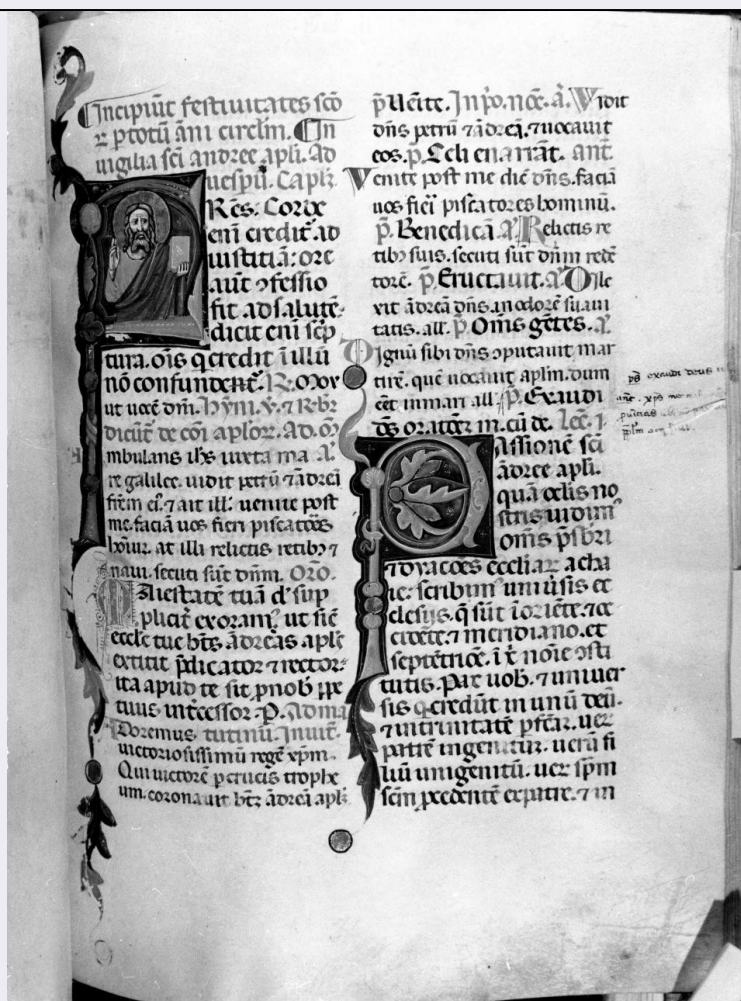 Incipiūt festiuitates scō
⁊ ꝑ totū āni circlm̄. In
uigilia sc̄i andree apl̄i. Ad
uesp̄ū. Capl̄z.
Res. Corde
enī credit᷑ ad
iustitiā: ore
aut̄ ɔfessio
fit ad salutē.
dicit enī sc̄p
tura. om̄s q̄ credit ī illū
nō confundent᷑. R. Mox
ut uocē dn̄i. Hym̄. V̄. ⁊ R. br̄
dicūt᷑ de cōi apl̄oꝝ. Ad. M̄
mbulans ih̄s iuxta ma A᷑
re galilee. uidit petrū ⁊ ādreā
fr̄em ei᷑. ⁊ ait ill᷑. uenite post
me. faciā uos fieri piscatōes
hōiūz. at illi relictis retibꝫ ⁊
naui. secuti sūt dn̄m. Or̄o.
Maiestatē tuā dn̄e sup
plicit᷑ exoram᷑. ut sic̄
eccl̄e tue bt̄s ādreas apl̄s
extitit p̄dicator ⁊ rector.
ita apud te sit ꝓ nob̄ ꝑpe
tuus int᷑cessor. P. Ad ma
Doremus tutinū. Inuit᷑.
uictoriosissimū regē xp̄m.
Qui uictorē ꝑ crucis trophe
um. coronauit bt̄z ādreā apl̄z
p̄. Uēite. In p̄o. noc̄. ā. Vidit
dn̄s petrū ⁊ ādreā. ⁊ uocauit
eos. p̄. Celi enarrāt. ant̄.
Venite post me dic̄ dn̄s. faciā
uos fieri piscatores hominū.
p̄. Benedicā. A᷑. Relictis re
tibꝫ suis. secuti sūt dn̄m redē
torē. p̄. Eructauit. A᷑. Dile
xit ādreā dn̄s. in odorē suaui
tatis. all᷑. p̄. Om̄s gētes. A᷑.
Dignū sibi dn̄s ɔputauit mar
tirē. quē uocauit apl̄m. dum
eēt in mari all᷑. p̄. Exaudi
dē̄s oratōēz m̄. cū de. Lec̄. i.
Passionē sc̄i
ādree apl̄i.
quā oc̄lis no
stris uidim᷑
om̄s p̄sbr̄i
⁊ dyacōēs eccl̄iaꝝ acha
ie. scribim᷑ uniū̄sis ec
clesijs. q̄ sūt ī oriēte. ⁊ oc
cidēte. ⁊ meridiano. et
septētriōe. ī x̄ noīe ɔsti
tutis. Pax uob᷑. ⁊ uniuer
sis q̄ credūt in unū deū.
⁊ in trinitatē ꝑfcāz. uez
patrē ingenitūz. uerū fi
liū unigenitū. uez sp̄m
sc̄m ꝓcedentē ex patre. ⁊ in
ps̄ exaudi deus
ant̄. xp̄s me